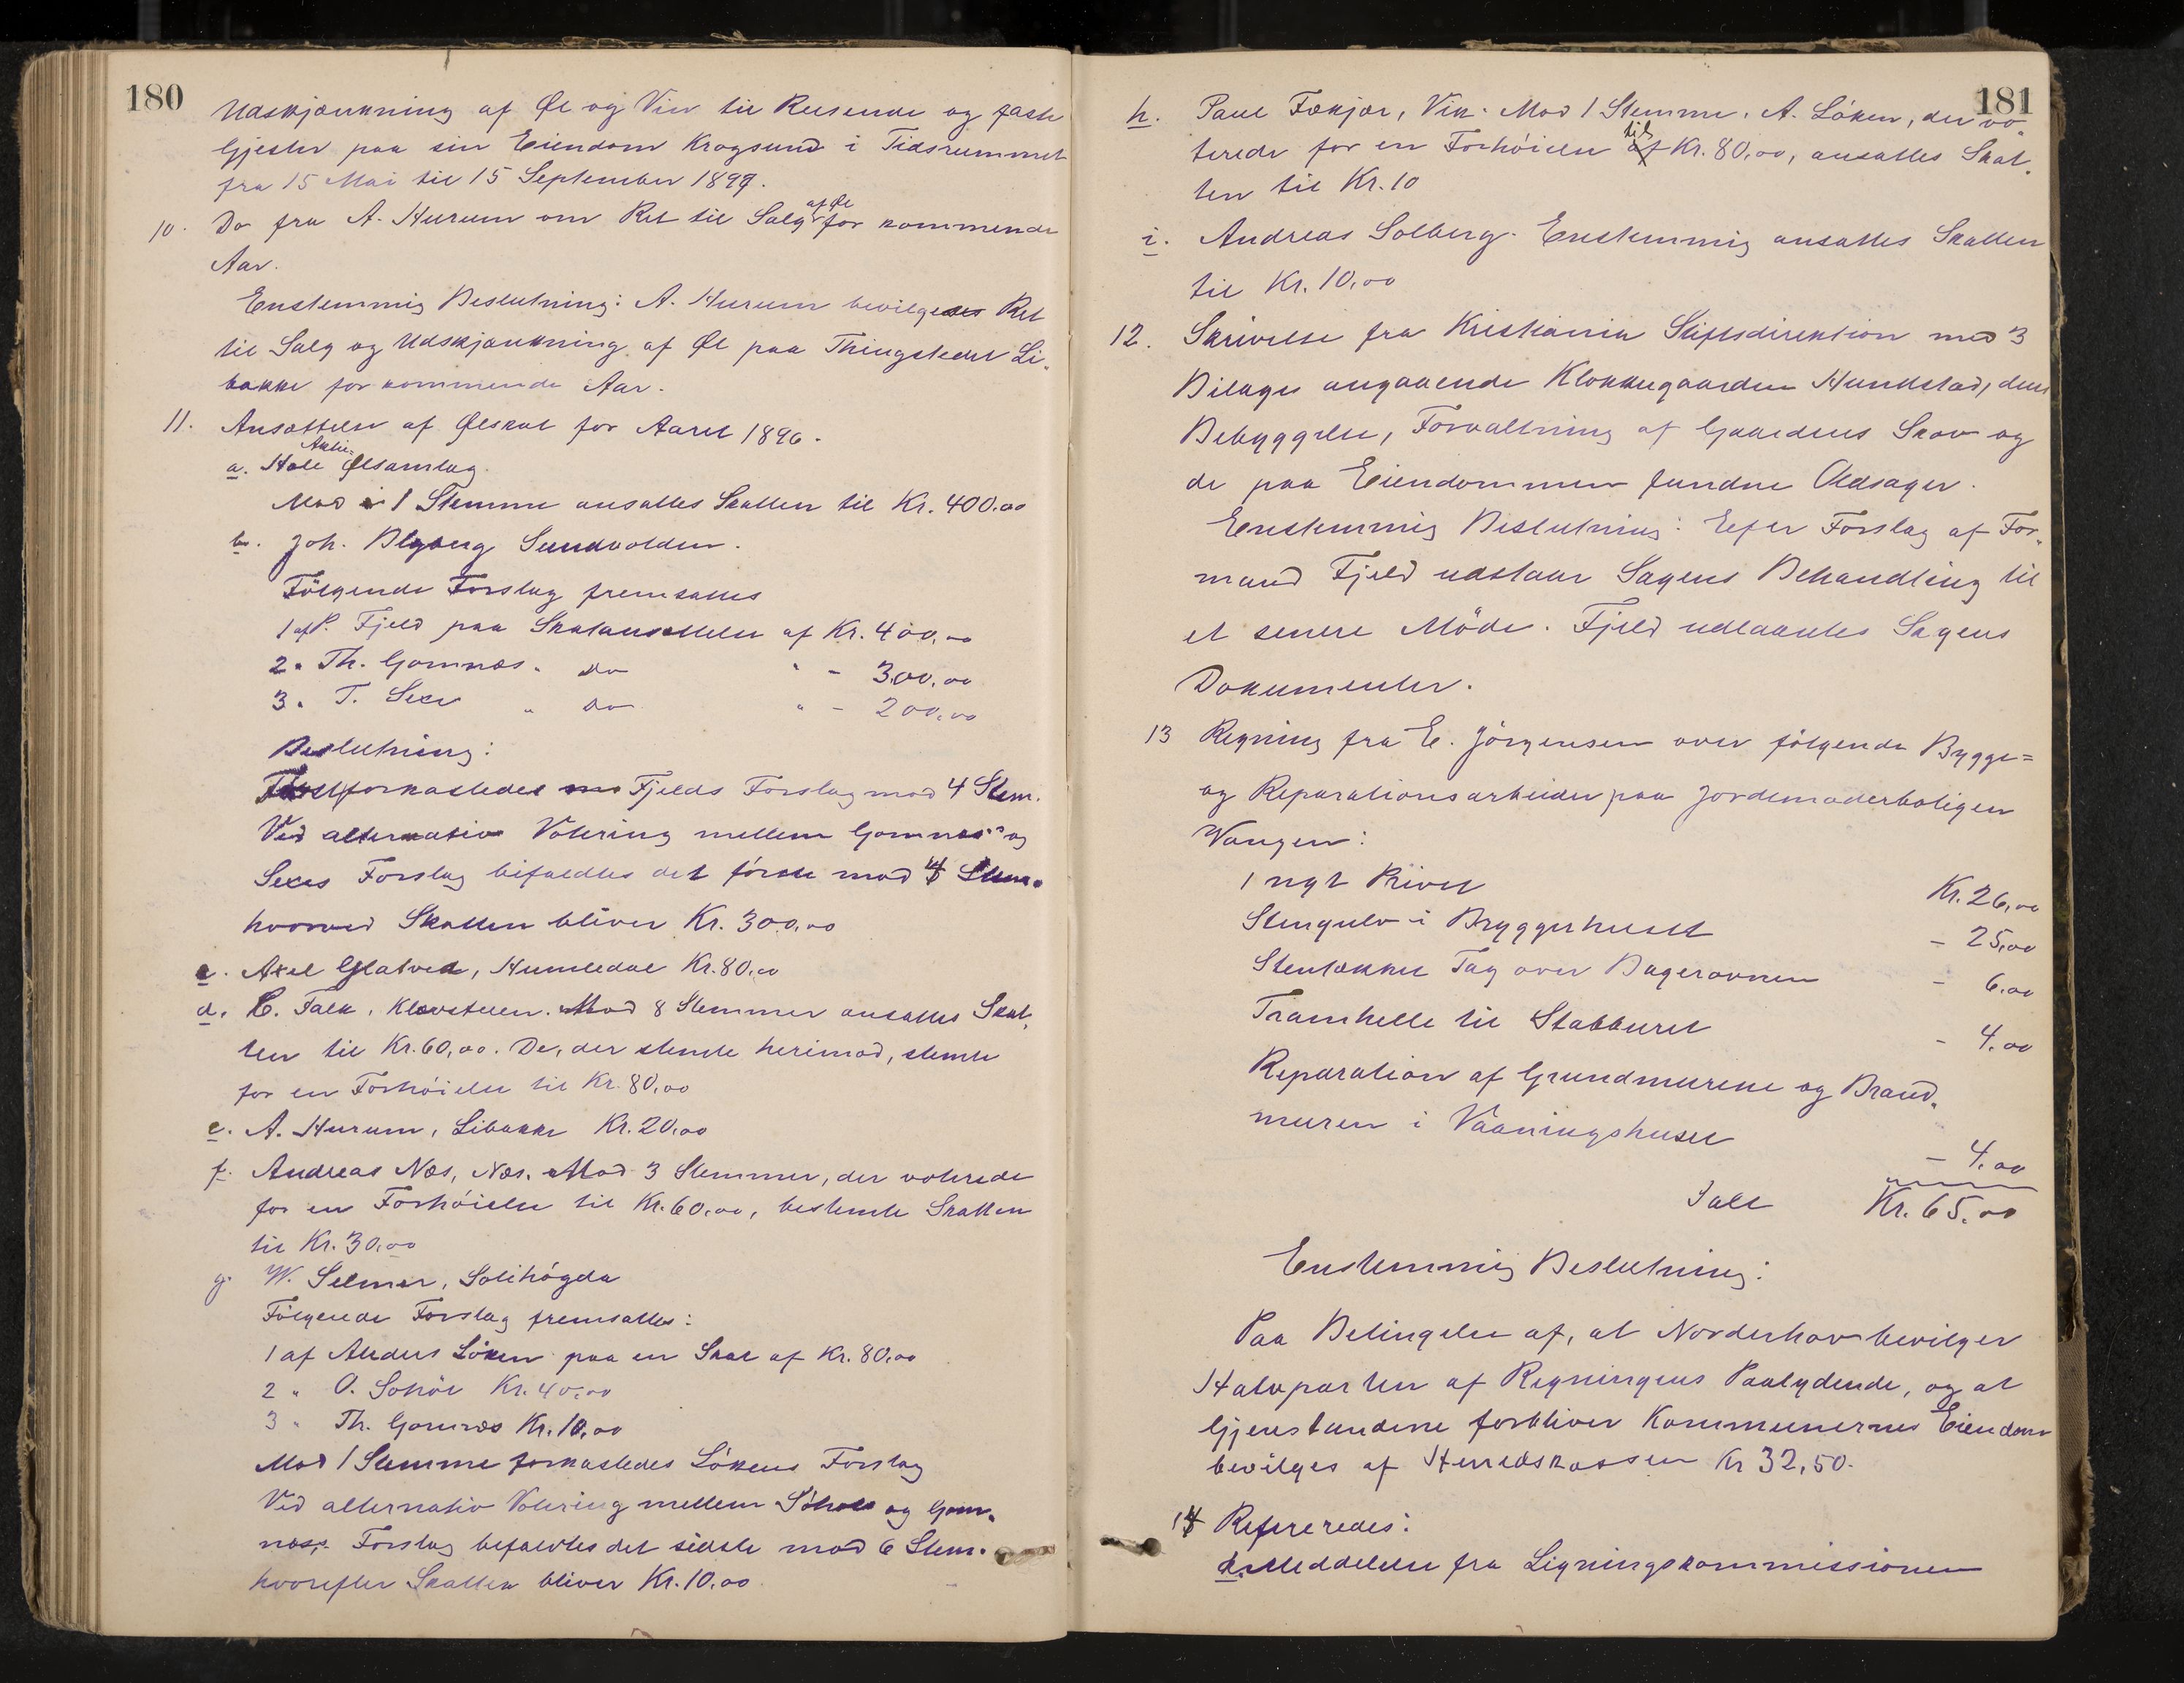 180
Udskjænkning af Øl og Vin til Reisende og faste
Gjester paa sin Eiendom Krogsund i Tidsrummet
fra 15 Mai til 15 September 1897.
10. Do fra A. Hurum om Ret til Salg af Øl for kommende
Aar.
Enstemmig Beslutning: A. Hurum bevilges Ret
til Salg og Udskjænkning af Øl paa Thingstedet Li-
bakke for kommende Aar.
11. Ansættelse af Ølskat for Aaret 1896.
a. Hole Aktie Ølsamlag.
Mod 1 Stemme ansattes Skatten til Kr. 400.00
b. Joh. Blyberg Sundvolden.
Følgende Forslag fremsattes
1 af P. Fjeld paa Skatansættelse af Kr. 400,00
2 " Th. Gomnæs " Do " - 300,00
3 " T. Sexe " Do " - 200,00
Beslutning:
forkastedes Fjelds Forslag mod 4 Stem.
Ved alternativ Votering mellem Gomnæs' og
Sexes Forslag bifaldtes det første mod 4 Stem.
hvorved Skatten bliver Kr. 300,00
c. Axel Glatved, Humledal Kr. 80,00
d. C. Falk, Klævstuen. Mod 8 Stemmer ansattes Skat-
ten til Kr. 60,00. De, der stemte herimod, stemte
for en Forhøielse til Kr. 80,00
e. A. Hurum, Libakke Kr. 20,00
f. Andreas Næs, Næs. Mod 3 Stemmer, der voterede
for en Forhøielse til Kr. 60,00, bestemte Skatten
til Kr. 30,00
g. W. Selmer, Solihøgda
Følgende Forslag fremsattes:
1 af Anders Løken paa en Skat af Kr. 80,00
2 " O. Sohol Kr. 40,00
3 " Th. Gomnæs Kr. 10,00
Mod 1 Stemme forkastedes Løkens Forslag
Ved alternativ Votering mellem Sohols og Gom-
næs's Forslag bifaldtes det sidste mod 6 Stem.
hvorefter Skatten bliver Kr. 10,00
181
h. Paul Fækjær, Vik. Mod 1 Stemme, A. Løken, der vo-
terede for en Forhøielse til Kr. 80,00, ansattes Skat-
ten til Kr. 10
i. Andreas Solberg. Enstemmig ansattes Skatten
til Kr. 10,00
12. Skrivelse fra Kristiania Stiftsdirektion med 3
Bilage angaaende Klokkegaarden Hundstad, dens
Bebyggelse, Forvaltning af Gaardens Skov og
de paa Eiendommen fundne Oldsager.
Enstemmig Beslutning: Efter Forslag af For-
mand Fjeld udstaar Sagens Behandling til
et senere Møde. Fjeld udlaantes Sagens
Dokumenter.
13 Regning fra E. Jørgensen over følgende Bygge=
og Reparationsarbeider paa Jordemoderboligen
Vangen:
1 nyt Privet Kr. 26,00
Stengulv i Bryggerhuset - 25,00
Stentække Tag over Bagerovnen - 6.00
Tramhelle til Stabburet - 4.00
Reparation af Grundmurene og Brand-
muren i Vaaningshuset - 4.00
Ialt Kr. 65.00
Enstemmig Beslutning:
Paa Betingelse af, at Norderhov bevilger
Halvparten af Regningens Paalydende, og at
Gjenstandene forbliver Kommunernes Eiendom
bevilges af Herredskassen Kr 32,50.
14 Refereredes:
a. Meddelelse fra Ligningskommissionen